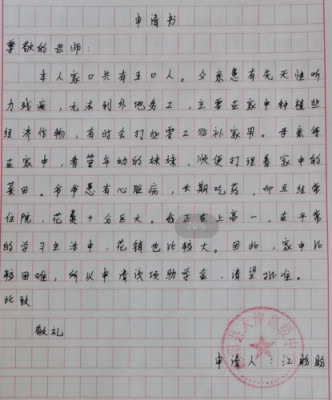 申请书
尊敬的老师：
本人家口共有五口人。父亲患有先天性听
力残疾，无法到外地务工，主要在家中种植些
经济作物，有时会打些零工贴补家用。母亲待
在家中，看管年幼的妹妹，顺便打理着家中的
菜田。爷爷患有心脏病，长期吃药，而且经常
住院，花费十分巨大。我正在上高一，在平常
的学习生活中，花销也比较大。因此，家中比
较困难，所以申请该项助学金，请望批准。
此致
敬礼
70%
申请人：江